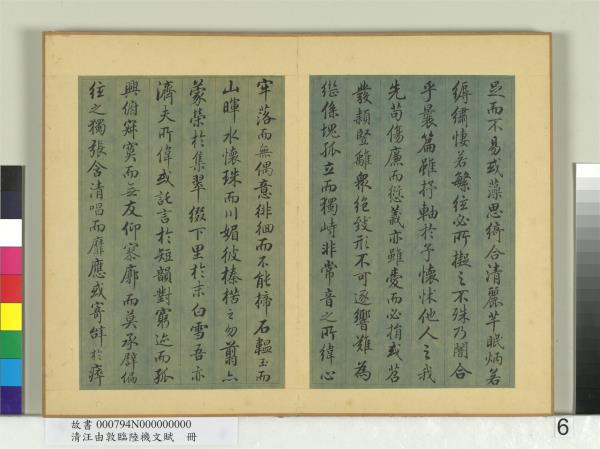 足而不易或藻思綺合清麗芊眠炳若
縟繡悽若繁絃必所擬之不殊乃闇合
乎曩篇雖杼軸於予懷怵他人之我
先苟傷廉而愆義亦雖愛而必捐或苕
發穎豎離衆絶致形不可逐響難為
繼係塊孤立而獨峙非常音之所緯心
牢落而無偶意徘徊而不能揥石韞玉而
山暉水懷珠而川媚彼榛楛之勿翦亦
蒙榮於集翠綴下里於末白雪吾亦
濟夫所偉或託言於短韻對窮迹而孤
興俯寂寞而无友仰寥廓而莫承譬偏
絃之獨張含清唱而靡應或寄辭於瘁
故書 000794N000000000
清汪由敦臨陸機文賦 冊
6